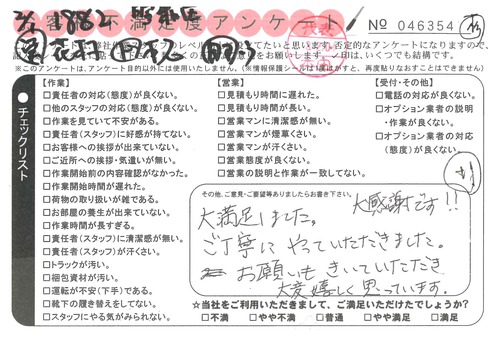 お客様不満足度アンケート
No 046354
※このアンケートは、アンケート目的以外には使用いたしません。(※情報保護シールは1度はがすと、再度貼りなおすことはできません)
●チェックリスト
【作業】
□責任者の対応(態度)が良くない。
□他のスタッフの対応(態度)が良くない。
□作業を見ていて不安がある。
□責任者(スタッフ)に好感が持てない。
□お客様への挨拶が出来ていない。
□ご近所への挨拶・気遣いが無い。
□作業開始前の内容確認がなかった。
□作業開始時間が遅れた。
□荷物の取り扱いが雑である。
□お部屋の養生が出来ていない。
□作業時間が長すぎる。
□責任者(スタッフ)に清潔感が無い。
□責任者(スタッフ)が汗くさい。
□トラックが汚い。
□梱包資材が汚い。
□運転が不安(下手)である。
□靴下の履き替えをしてない。
□スタッフにやる気がみられない。
【営業】
□見積もり時間に遅れた。
□見積もり時間が長い。
□営業マンに清潔感が無い。
□営業マンが煙草くさい。
□営業マンが汗くさい。
□営業態度が良くない。
□営業の説明と作業が一致してない。
【受付・その他】
□電話の対応が良くない。
□オプション業者の説明・作業が良くない。
□オプション業者の対応(態度)が良くない。
その他、ご意見・ご要望等ありましたらお書き下さい。
大感謝です!!
大満足しました。
ご丁寧にやっていただきました。
お願いもきいていただき
大変嬉しく思っています。
☆当社をご利用いただきまして、ご満足いただけたでしょうか?
□不満 □やや不満 □普通 □やや満足 □満足